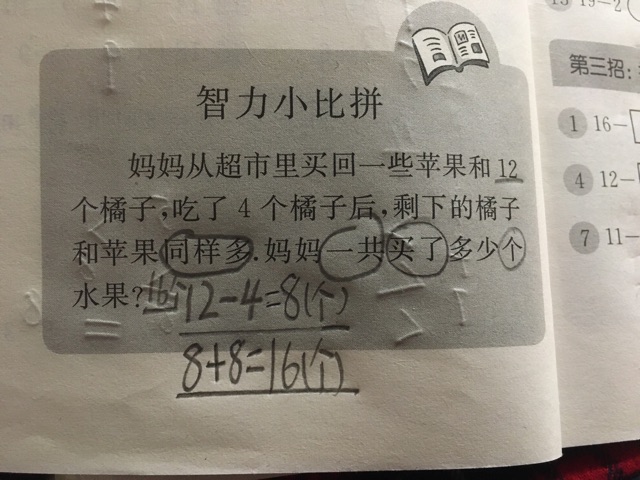 智力小比拼
妈妈从超市里买回一些苹果和12
个橘子,吃了4个橘子后,剩下的橘子
和苹果同样多.妈妈一共买了多少个
水果?16个12-4=8(个)
8+8=16(个)
第三招:
1 16-
4 12-
7 11-